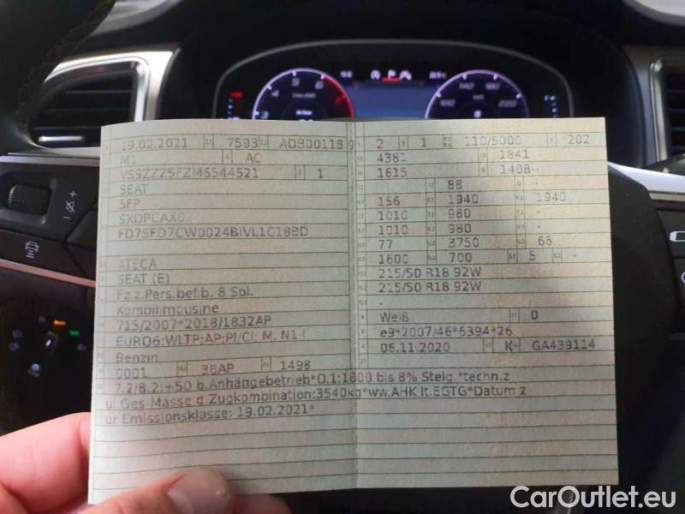 19.02.2021 7593 AOB000118 9
M1 AC
VSSZZZ5FZM6544521 1
SEAT
5FP
SXDPCAX0
FD7SFD7CW0024BIVL1C18BD
ATECA
SEAT (E)
Fz.z.Pers.bef.b. 8 Spl.
Kombilimousine
715/2007*2018/1832AP
EURO6;WLTP;AP;PI/CI; M, N1 I
Benzin
0001 36AP 1498
7.2/8.2:+50 b.Anhängebetrieb*O.1:1800 bis 8% Steig.*techn.z
ul Ges-Masse d Zugkombination:3540kg*ww.AHK lt.EGTG*Datum z
ur Emissionsklasse: 19.02.2021*
2 1 110/5000 202
4381 1841
1615 1498-
88 -
156 1940 1940
1010 980 -
1010 980 -
77 3750 65
1600 700 5 -
215/50 R18 92W
215/50 R18 92W
-
Weiß 0
e9*2007/46*6394*26
06.11.2020 K GA439114
CarOutlet.eu